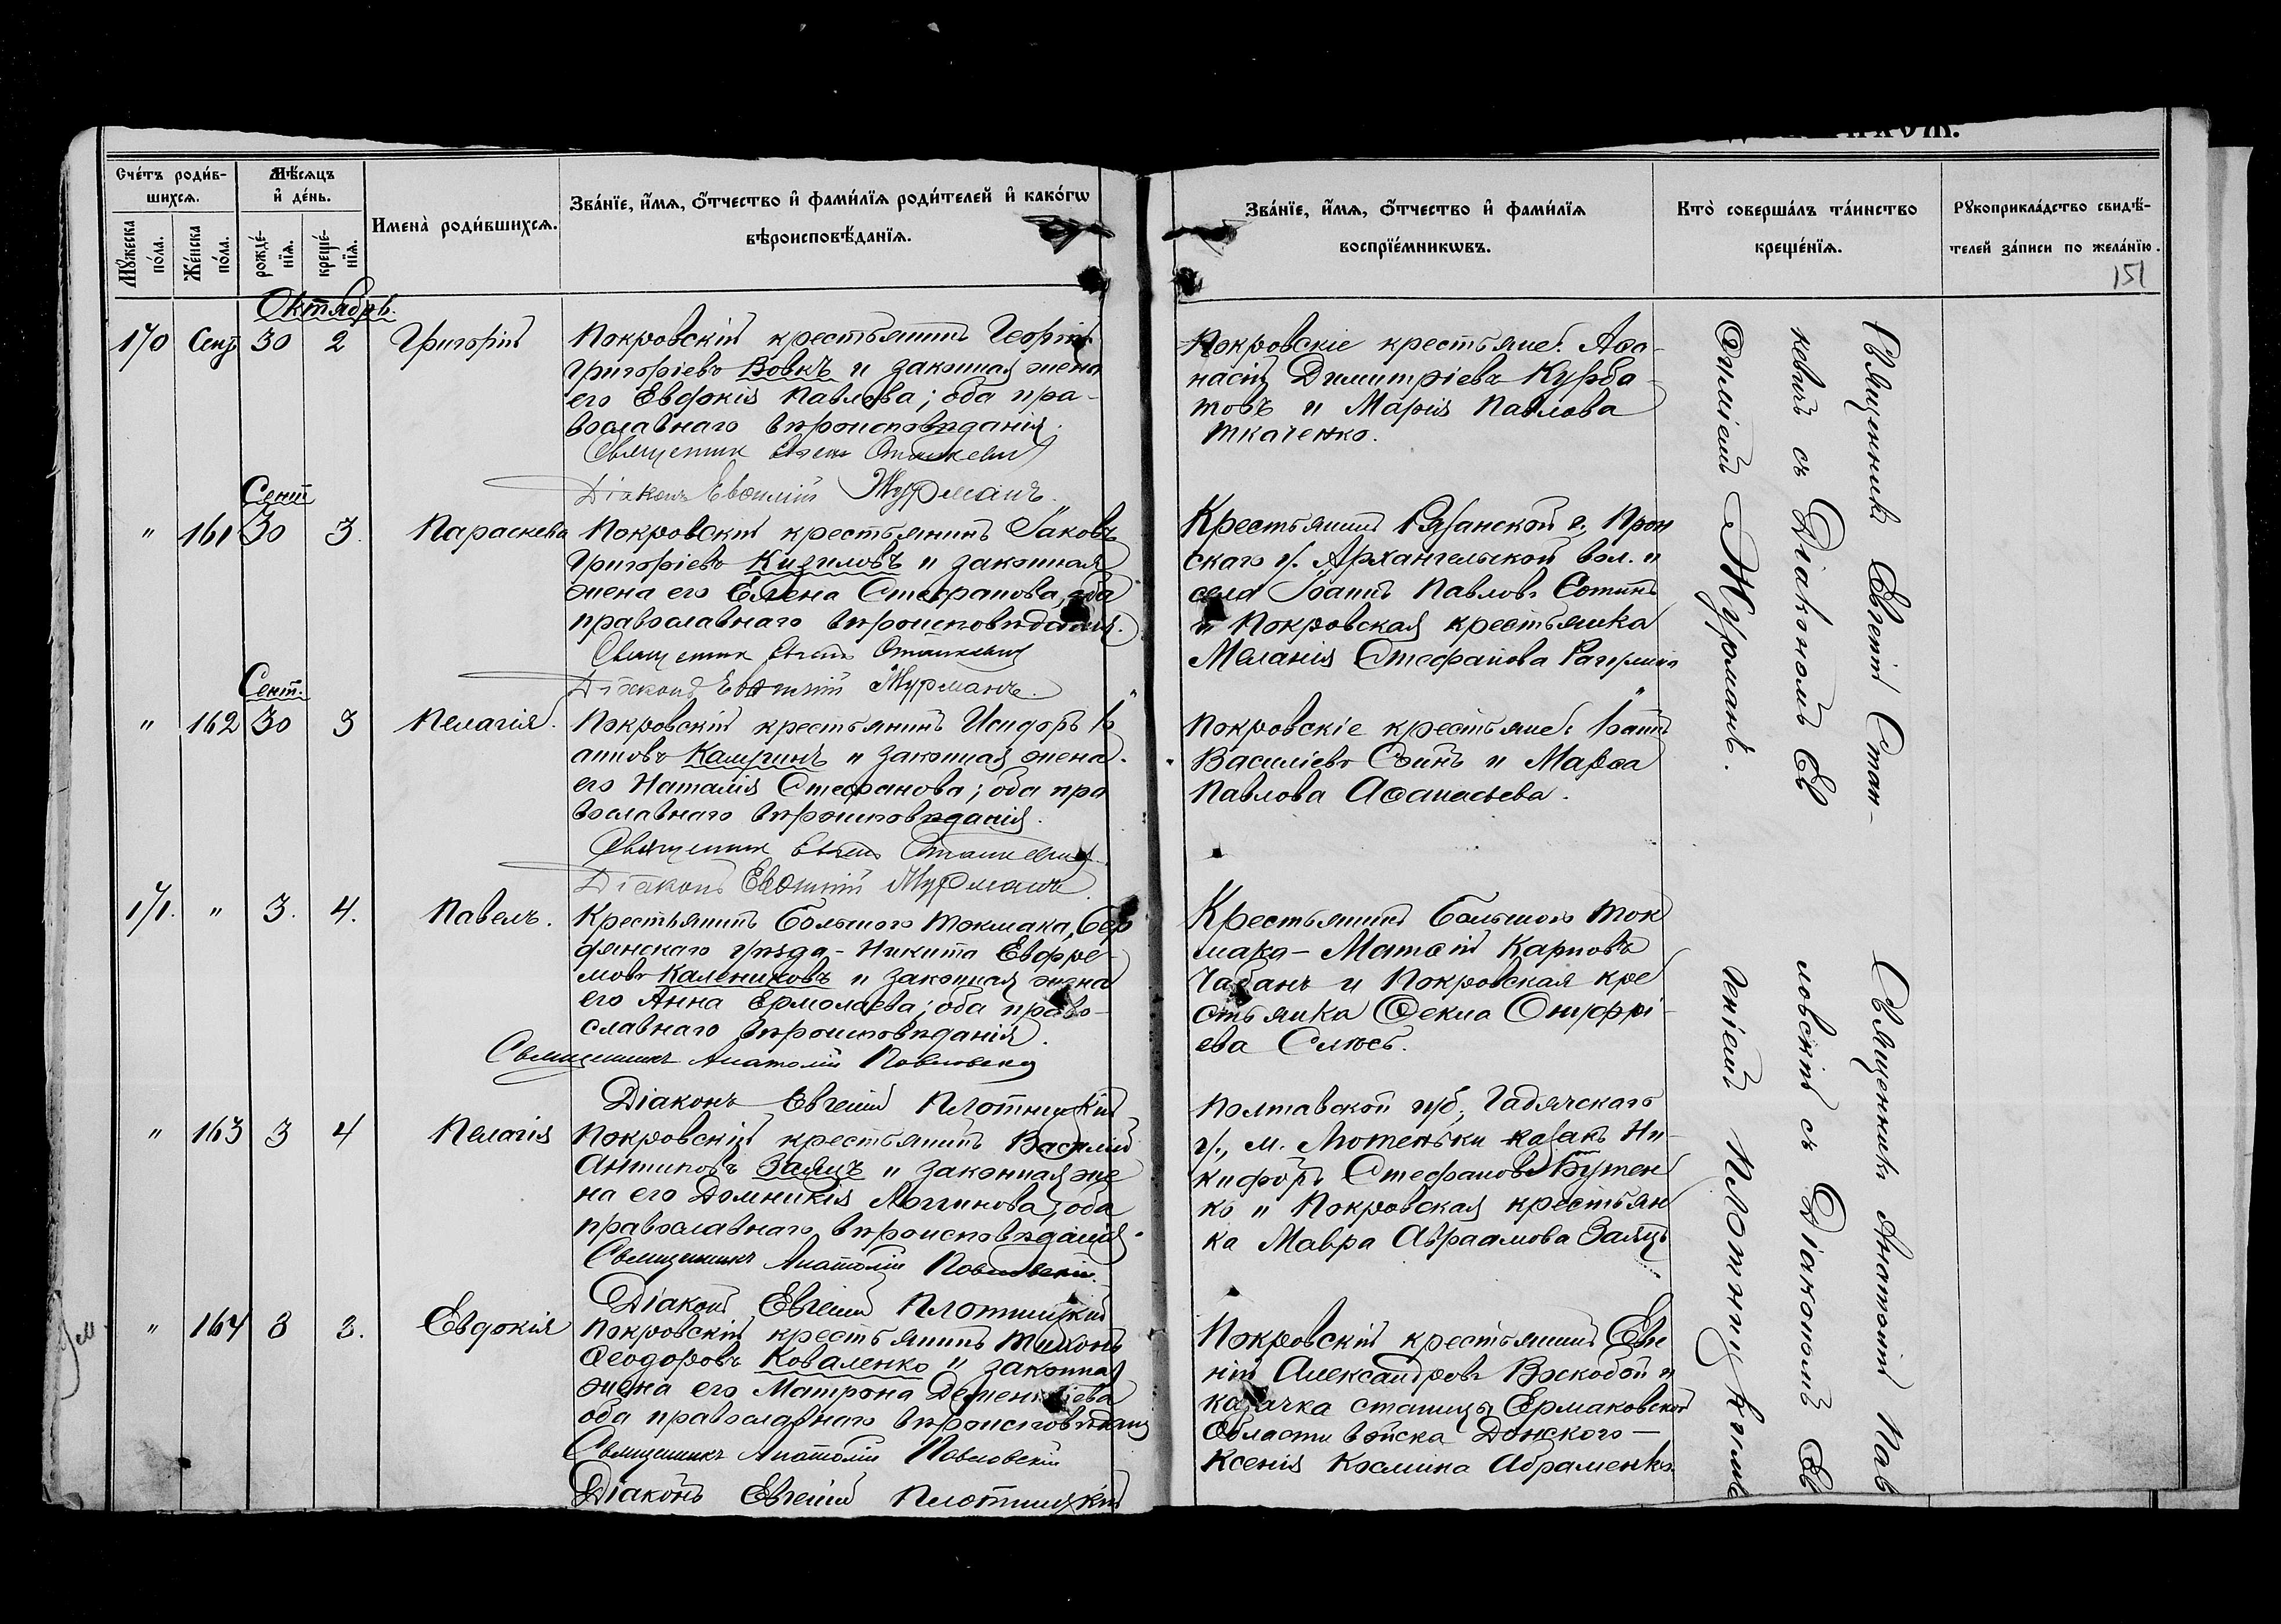 Сче́тъ роди́в-
шихсѧ.
Мѣ́сѧцъ
и҆ де́нь.
Мꙋ́жеска
по́ла.
Же́нска
по́ла.
рожде́-
нїѧ.
креще́-
нїѧ.
Имена̀ роди́вшихсѧ.
Зва́нїе, и҆́мѧ, ѻ҆́тчество и҆ фами́лїѧ роди́телей и҆ како́гѡ
вѣроисповѣ́данїѧ.
Зва́нїе, и҆́мѧ, ѻ҆́тчество и҆ фами́лїѧ
воспрїе́мникѡвъ.
Кто̀ соверша́лъ та́инство
креще́нїѧ.
Рꙋкоприкла́дство свидѣ́-
телей за́писи по жела́нїю.
151
Октябрь.
170 Сент 30 2 Григорій
Покровскій крестьянинъ Георгій
Григоріевъ Вовкъ и законная жена
его Евдокія Павлова; оба пра-
вославнаго вѣроисповѣданія.
Священник Станкевич
Діаконъ Евѳимій Журманъ.
Покровскіе крестьяне: Аѳа-
насій Димитріевъ Курба-
товъ и Марія Павлова
Ткаченко.
Сент
" 161 30 3. Параскева
Покровскій крестьянинъ Іаковъ
Григоріевъ Кизиловъ и законная
жена его Елена Стефанова, оба
православнаго вѣроисповѣданія.
Священник Станкевич
Діаконъ Евѳимій Журманъ.
Крестьянинъ Рязанской г., Прон
скаго у. Архангельской вол. и
села Іоаннъ Павловъ
и Покровская крестьянка
Меланія Стефанова
Сент.
" 162 30 3 Пелагія.
Покровскій крестьянинъ Исидоръ Іо
анновъ и законная жена
его Наталія Стефанова; оба пра
вославнаго вѣроисповѣданія.
Священник Станкевич
Діаконъ Евѳимій Журманъ
Покровскіе крестьяне: Іоаннъ
Василіевъ и Марѳа
Павлова Аѳанасьева.
171. " 3. 4. Павелъ.
Крестьянинъ Большого Токмака, Бер
дянскаго уѣзда - Никита Евфре-
мовъ Калениковъ и законная жена
его Анна Ермолаева; оба право-
славнаго вѣроисповѣданія.
Священникъ Анатолій Павловскій
Діаконъ Евгеній Плотницкій
Крестьянинъ Большого Ток
мака - Матѳій Карповъ
Чабанъ и Покровская кре
стьянка Ѳекла Онуфрі-
ева Слюсь.
" 163 3 4 Пелагія
Покровскій крестьянинъ Василій
Антиповъ Заяцъ и законная же
на его Домникія Логгинова; оба
православнаго вѣроисповѣданія.
Священникъ Анатолій Павловскій.
Діаконъ Евгеній Плотницкій
Полтавской губ., Гадячскаго
у., м. Лютеньки казакъ Ни-
кифоръ Стефановъ Бутен
ко и Покровская крестьян
ка Мавра Авраамова Заяцъ
" 164 3 3. Евдокія
Покровскій крестьянинъ Тихонъ
Ѳеодоровъ Коваленко и законная
жена его Матрона Дементіева
оба православнаго вѣроисповѣданія
Священникъ Анатолій Павловскій
Діаконъ Евгеній Плотницкій
Покровскій крестьянинъ Евге
ній Александровъ Воскобой и
казачка станицы Ермаковской
Области войска Донского -
Ксенія Космина Абраменко.
Священникъ Евгеній Стан-
кевичъ съ Діакономъ Ев
ѳиміемъ Журманъ.
Священникъ Анатолій Пав
ловскій съ Діакономъ Ев
геніемъ Плотницкимъ